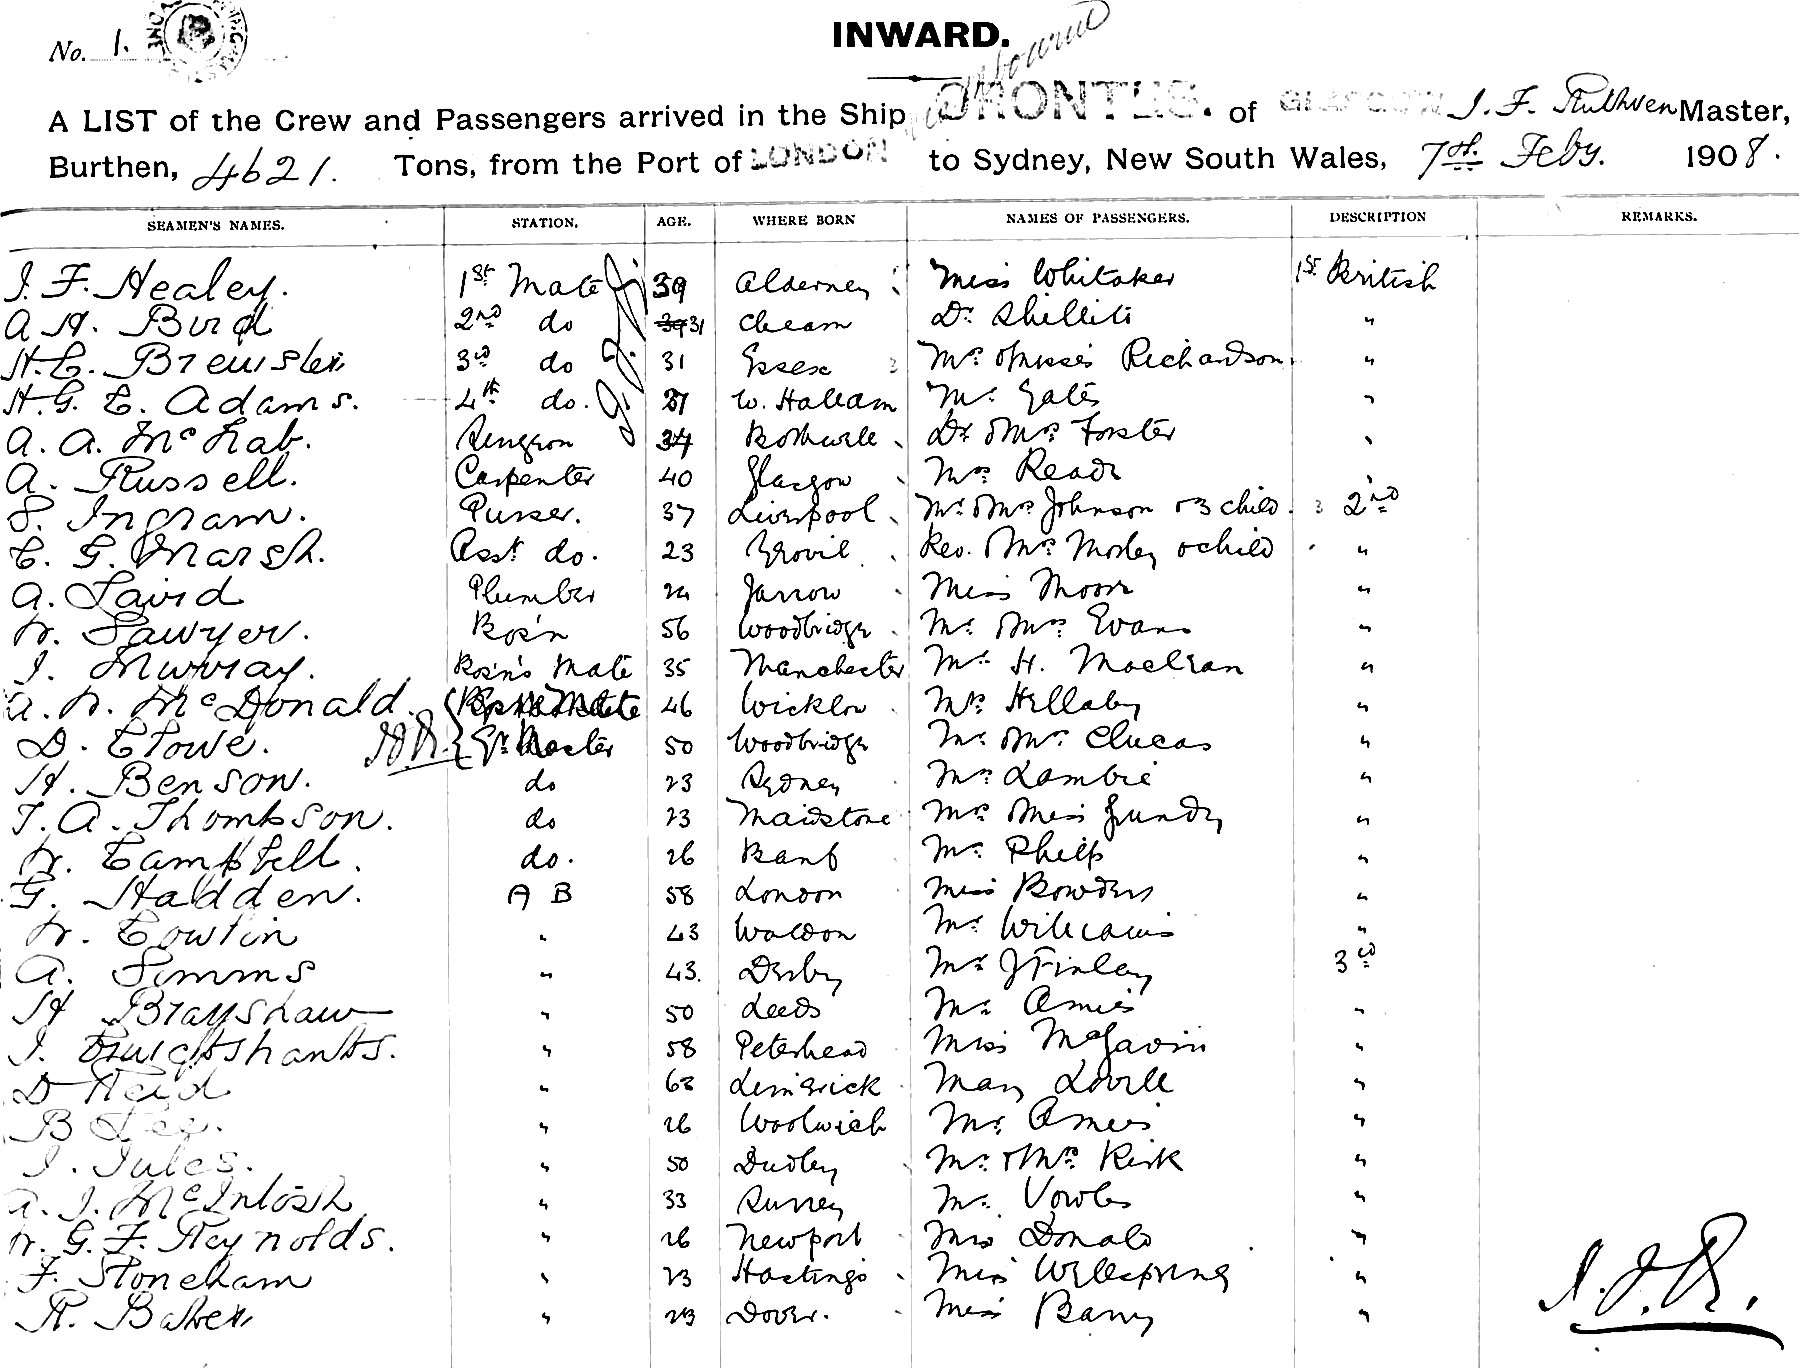 No. 1.
INWARD.
A LIST of the Crew and Passengers arrived in the Ship ORONTES. of GLASGOW J. F. Ruthven Master,
Burthen, 4621. Tons, from the Port of LONDON to Sydney, New South Wales, 7th Feby. 1908.
SEAMEN'S NAMES. STATION. AGE. WHERE BORN NAMES OF PASSENGERS. DESCRIPTION REMARKS.
J. F. Healey. 1st Mate 39 Alderney Miss Whitaker 1st British
A. H. Bird 2nd do 31 Cheam Dr. Shilliti "
H. C. Brewster 3rd do 31 Essex Mrs & Misses Richardson "
H. G. C. Adams. 4th do. W. Hallam Mr. Yates "
A. A. McNab. Surgeon 34 Bothwell Dr & Mrs Forster "
A. Russell. Carpenter 40 Glasgow Mrs Reade "
S. Ingram. Purser. 37 Liverpool Mr & Mrs Johnson & 3 child. 2nd
C. G. Marsh. Asst do. 23 Yeovil Rev. & Mrs Morley & child "
A. Laird Plumber 24 Jarrow Miss Moore "
W. Sawyer. Bos'n 56 Woodbridge Mr. & Mrs Evans "
J. Murray. Bos'n's Mate 35 Manchester Mr. H. Maclean "
A. W. McDonald. 46 Wicklow Mr. Hillaby "
D. Clowe. Qr Master 50 Woodbridge Mr & Mrs Clucas "
H. Benson. do 23 Sydney Mrs Lambie "
T. A. Thompson. do 23 Maidstone Mrs & Miss Grundy "
W. Campbell. do. 26 Banf Mr. Philp "
G. Hadden. A B 58 London Miss Bowders "
W. Cowlin " 43 Waldon Mr. Williams "
A. Simms " 43. Derby Mr. J Finley 3rd
H Brayshaw " 50 Leeds Mr. Amies "
J. Cruickshanks. " 58 Peterhead Miss McGavin "
D Reid " 63 Limerick Mary Lovell "
B Lee. " 26 Woolwich Mr. Amies "
J. Jules. " 50 Dudley Mr. & Mrs. Kirk "
A. J. McIntosh " 33 Surrey Mr. Vowles "
W. G. F. Reynolds. " 26 Newport Mrs Donald "
F. Stoneham " 23 Hastings Miss Wellspring "
R. Baker " 23 Dover. Miss Barry "
J. F. R.